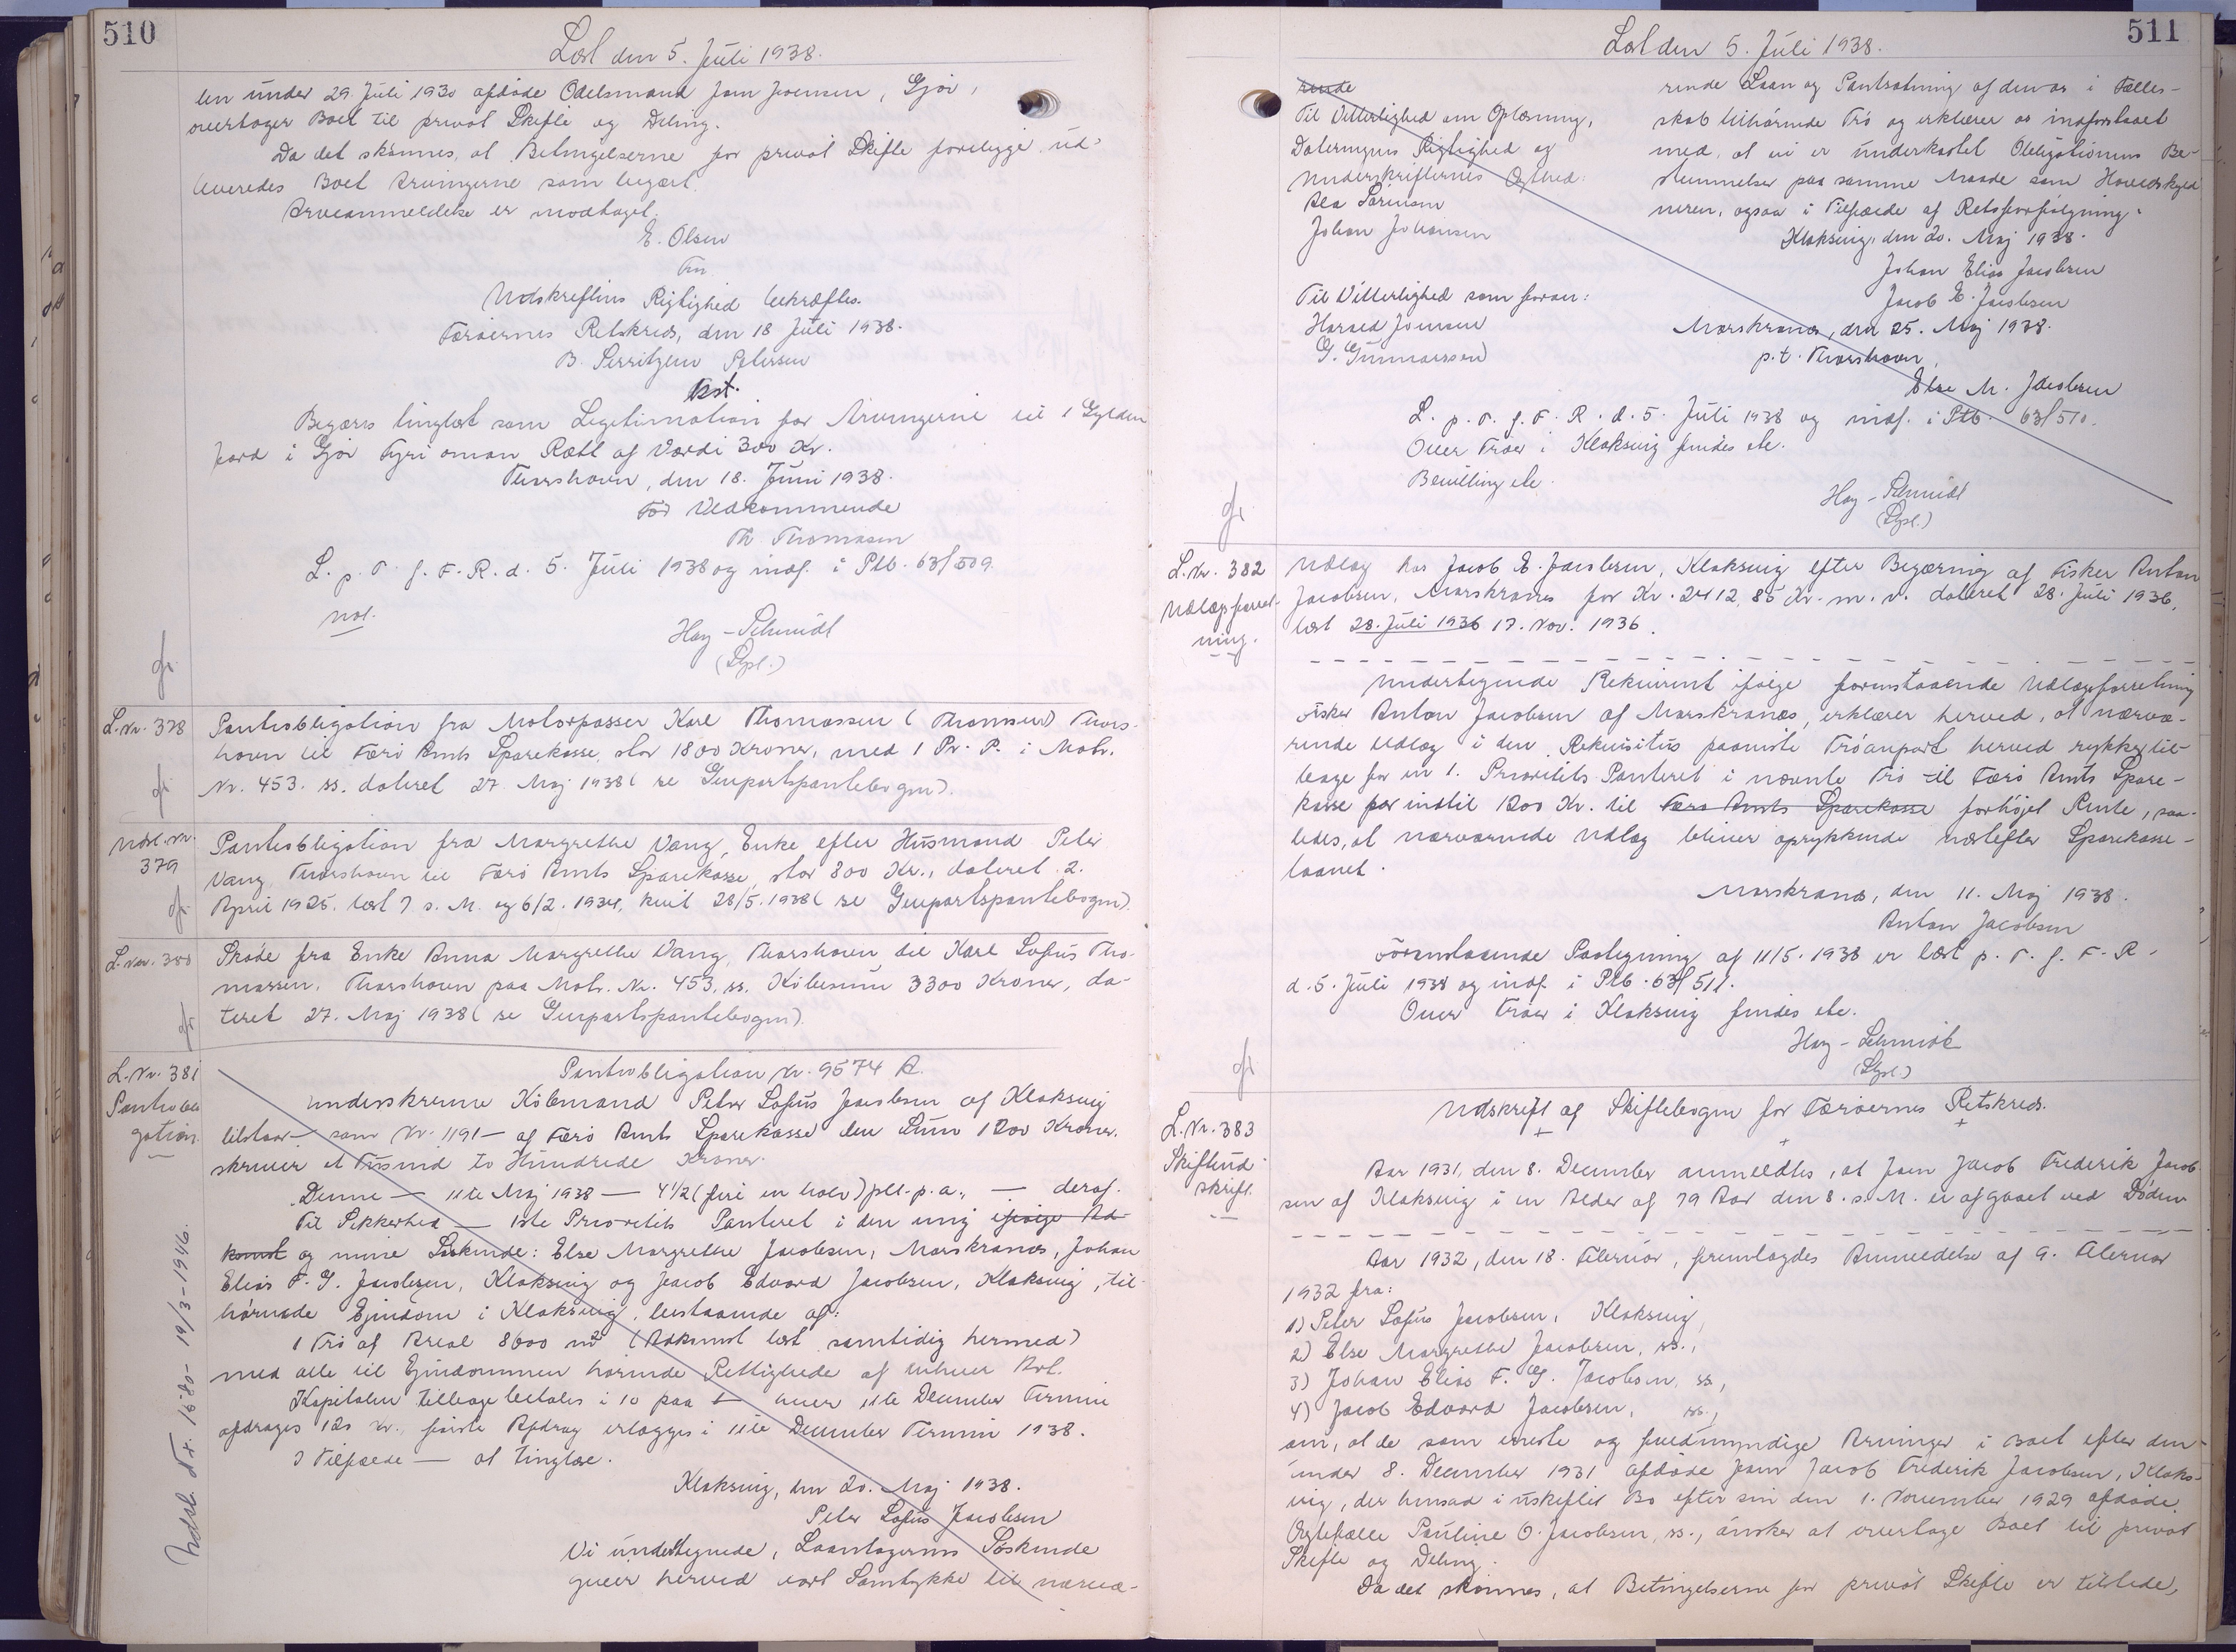 510
Læst den 5. Juli 1938.
len under 29. Juli 1930 afdøde Odelsmand Joen Joensen, Gjov,
overtager Boet til privat Skifte og Deling.
Da det skønnes, at Betingelserne for privat Skifte foreligge, ud-
leveredes Boet Arvingerne som begært.
Arveanmeldelse er modtaget.
E. Olsen
Fm.
Udskriftens Rigtighed bekræftes.
Færøernes Retskreds, den 18 Juli 1938.
B. Serritzlew Petersen
Kst.
Begæres tinglæst som Legitimation for Arvingerne til 1 Gylden
Jord i Gjov fyri oman Rætt af Værdi 300 Kr.
Thorshavn, den 18. Juni 1938.
For Vedkommende
Th. Thomasen
L. p. T. f. F. R. d. 5. Juli 1938 og indf. i Ptb. 63/509.
not.
Høy-Schmidt
(Lspl.)
gr
L. Nr. 378
Pantobligation fra Motorpasser Karl Thomassen (Thomsen) Thors-
havn til Færø Amts Sparekasse, stor 1800 Kroner, med 1 Pr. P. i Matr.
Nr. 453. ss. dateret 27. Maj 1938 (se Genpartspantebogen).
gr
Udsl. Nr. 379
Pantobligation fra Margrethe Vang, Enke efter Husmand Peter
Vang, Thorshavn til Færø Amts Sparekasse, stor 800 Kr., dateret 2.
April 1925. læst 7 s. M. og 6/2. 1934, kvit 28/5. 1938 (se Genpartspantebogen).
gr
L. Nr. 380
Skøde fra Enke Anna Margrethe Vang, Thorshavn til Karl Sofus Tho-
massen, Thorshavn paa Matr. Nr. 453, ss. Købesum 3300 Kroner, da-
teret 27. Maj 1938 (se Genpartspantebogen).
gr
L. Nr. 381
Pantobli
gation.
Pantobligation Nr. 9574 A.
Underskrevne Købmand Peter Sofus Jacobsen af Klaksvig
tilstaar — som Nr. 1191 — af Færø Amts Sparekasse den Sum 1200 Kroner.
skriver et Tusind to Hundrede Kroner.
Denne — 11te Maj 1938 — 4½ (fire en halv) pct. p. a., — deraf.
Til Sikkerhed — 1ste Prioritets Panteret i den mig ifølge Ad-
komst og mine Søskende: Else Margrethe Jacobsen, Morskranes, Johan
Elias F. G. Jacobsen, Klaksvig og Jacob Edvard Jacobsen, Klaksvig, til-
hørende Ejendom i Klaksvig, bestaaende af:
1 Trø af Areal 8600 m² (Adkomst læst samtidig hermed)
med alle til Ejendommen hørende Rettigheder af enhver Art.
Kapitalen tilbagebetales i 10 paa — hver 11te December Termin
afdrages 120 Kr., første Afdrag erlægges i 11te December Termin 1938.
I Tilfælde — at tinglæse.
Klaksvig, den 20. Maj 1938.
Peter Sofus Jacobsen
Vi undertegnede, Laantagerens Søskende
giver herved vort Samtykke til nærvæ-
Udsl. Nr. 1680 - 19/3-1946.
511
Læst den 5. Juli 1938.
rende
Til Vitterlighed om Oplæsning,
Dateringens Rigtighed og
Underskrifternes Ægthed:
Ala Sørensen
Johan Johansen
Til Vitterlighed som foran:
Harald Joensen
G. Gunnarsson
rende Laan og Pantsætning af den os i Fælles-
skab tilhørende Trø og erklærer os indforstaaet
med, at vi er underkastet Obligationens Be-
stemmelser paa samme Maade som Hovedskyld
neren, ogsaa i Tilfælde af Retsforfølgning.
Klaksvig, den 20. Maj 1938.
Johan Elias Jacobsen
Jacob E. Jacobsen
Morskranes, den 25. Maj 1938.
p.t. Thorshavn,
Else M. Jacobsen
L. p. T. f. F. R. d. 5. Juli 1938 og indf. i Ptb. 63/510.
Over Trøer i Klaksvig findes etc.
Bevilling etc.
Høy-Schmidt
(Lspl.)
gr
L. Nr. 382
Udlægsforret-
ning.
Udlæg hos Jacob E. Jacobsen, Klaksvig efter Begæring af Fisker Anton
Jacobsen, Morskranes for Kr. 2412,85 Kr. m. v. dateret 28. Juli 1936,
læst 28. Juli 1936 17. Nov. 1936.
Undertegnede Rekvirent ifølge foranstaaende Udlægsforretning
Fisker Anton Jacobsen af Morskranes, erklærer herved, at nærvæ-
rende Udlæg i den Rekvisitus paaviste Trøanpart herved rykker til-
bage for en 1. Prioritets Panteret i nævnte Trø til Færø Amts Spare-
kasse for indtil 1200 Kr. til Færø Amts Sparekasse forhøjet Rente, saa-
ledes, at nærværende Udlæg bliver oprykkende næstefter Sparekasse-
laanet.
Morskranes, den 11. Maj 1938.
Anton Jacobsen
Foranstaaende Paategning af 11/5. 1938 er læst p. T. f. F. R.
d. 5. Juli 1938 og indf. i Ptb. 63/511.
Over Trøer i Klaksvig findes etc.
Høy-Schmidt
(Lspl.)
gr
L. Nr. 383
Skifteud-
skrift.
Udskrift af Skiftebogen for Færøernes Retskreds.
Aar 1931, den 8. December anmeldtes, at Joen Jacob Frederik Jacob-
sen af Klaksvig i en Alder af 79 Aar den 8. s. M. er afgaaet ved Døden
Aar 1932, den 18. Februar, fremlagdes Anmeldelse af 9. Februar
1932 fra:
1) Peter Sofus Jacobsen, Klaksvig,
2) Else Margrethe Jacobsen, ss.,
3) Johan Elias F. G. Jacobsen, ss.,
4) Jacob Edvard Jacobsen, ss.,
om, at de som eneste og fuldmyndige Arvinger i Boet efter den
under 8. December 1931 afdøde Joen Jacob Frederik Jacobsen, Klaks-
vig, der hensad i uskiftet Bo efter sin den 1. November 1929 afdøde
Ægtefælle Pauline O. Jacobsen, ss., ønsker at overtage Boet til privat
Skifte og Deling.
Da det skønnes, at Betingelserne for privat Skifte er tilstede,